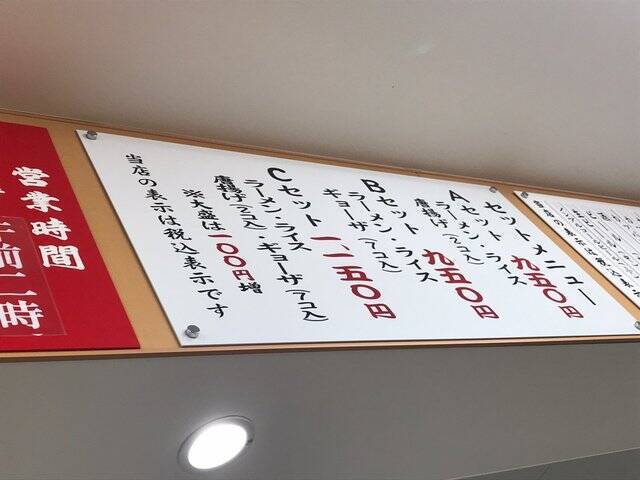 セットメニュー
Aセット 九五〇円
ラーメン・ライス
唐揚げ(2コ入)
Bセット 九五〇円
ラーメン・ライス
ギョーザ(7コ入)
Cセット 一、一五〇円
ラーメン・ライス・ギョーザ(7コ入)
唐揚げ(2コ入)
※大盛は一〇〇円増
当店の表示は税込表示です
営業時間
午前二時